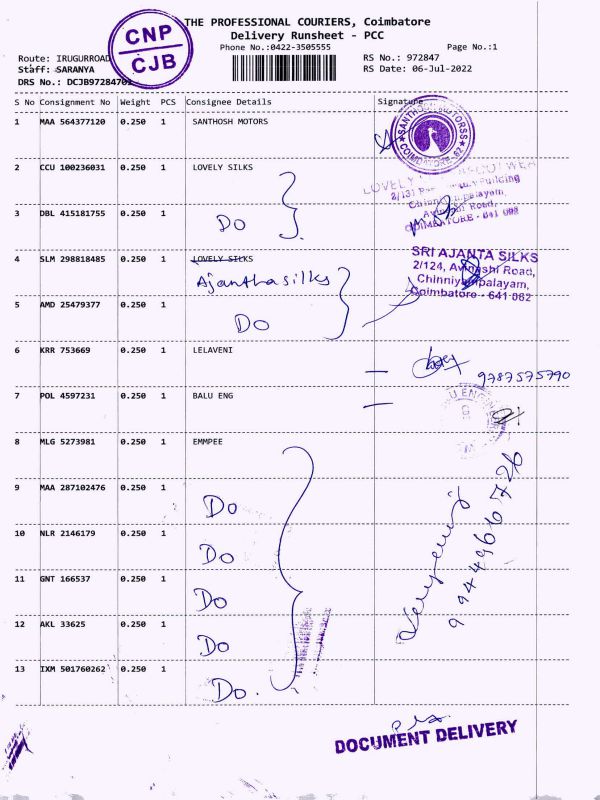 CNP
CJB
THE PROFESSIONAL COURIERS, Coimbatore
Delivery Runsheet - PCC
Phone No.:0422-3505555
Page No.:1
Route: IRUGURROAD
RS No.: 972847
Staff: SARANYA
RS Date: 06-Jul-2022
DRS No.: DCJB9728470
S No Consignment No Weight PCS Consignee Details Signature
1 MAA 564377120 0.250 1 SANTHOSH MOTORS
2 CCU 100236031 0.250 1 LOVELY SILKS
3 DBL 415181755 0.250 1 DO
4 SLM 298818485 0.250 1 LOVELY SILKS
Ajantha silks
SRI AJANTA SILKS
2/124, Avinashi Road,
Chinniyampalayam,
Coimbatore - 641 062
5 AMD 25479377 0.250 1 DO
6 KRR 753669 0.250 1 LELAVENI
9787575790
7 POL 4597231 0.250 1 BALU ENG
8 MLG 5273981 0.250 1 EMMPEE
9 MAA 287102476 0.250 1 Do
10 NLR 2146179 0.250 1 Do
11 GNT 166537 0.250 1 Do
12 AKL 33625 0.250 1 Do
13 IXM 501760262 0.250 1 Do.
DOCUMENT DELIVERY